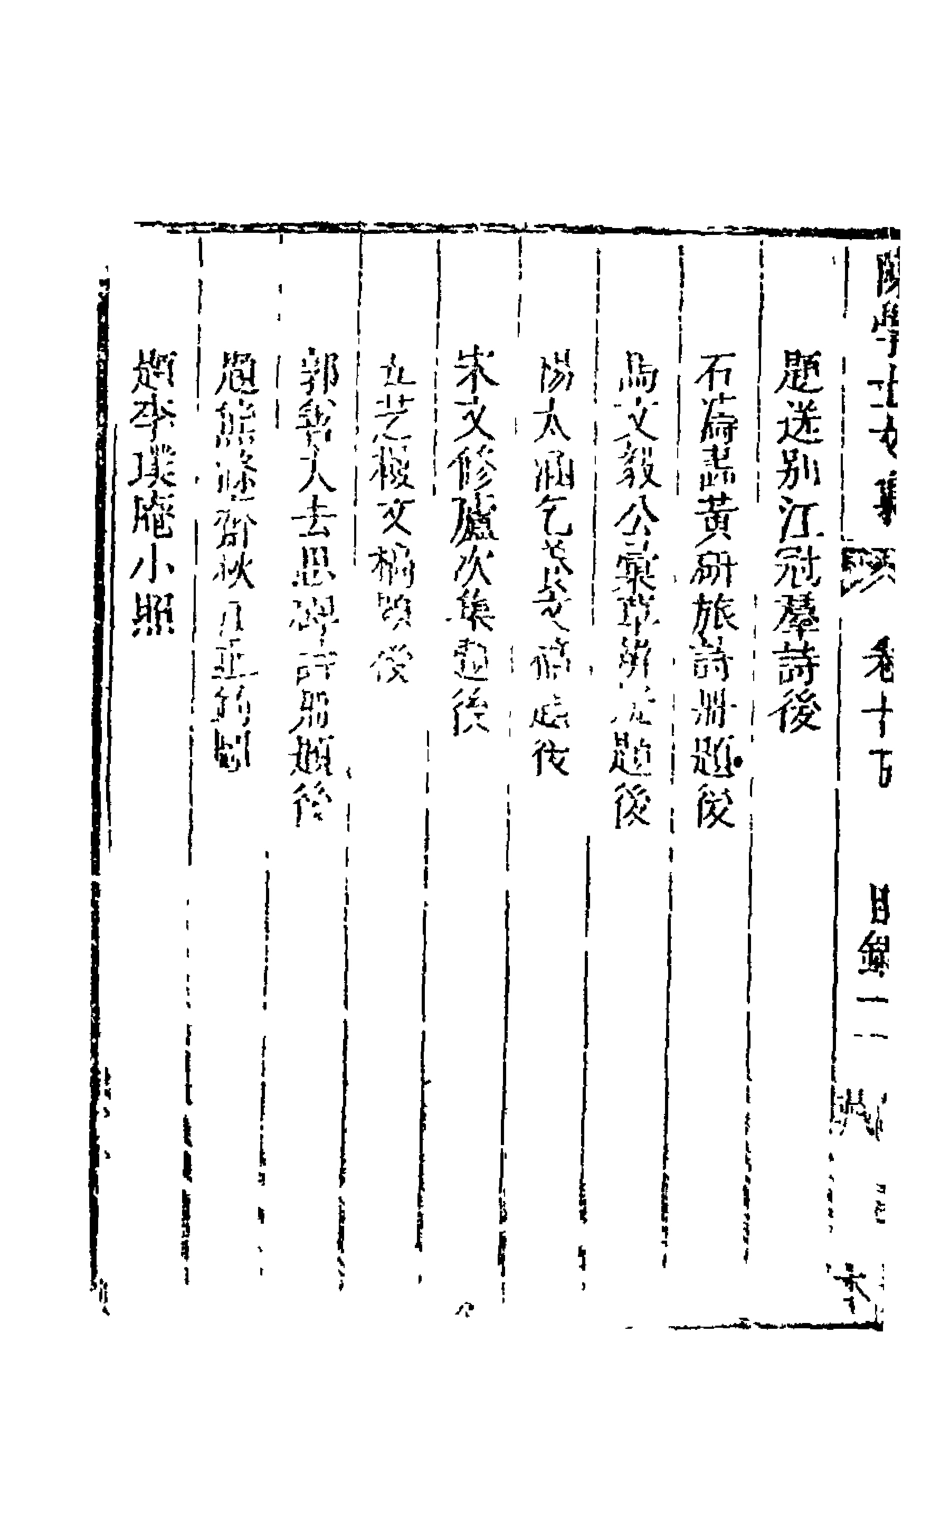 陳學士文集
卷十五
目錄一
題送別江冠羣詩後
石濤畫黃研旅詩冊題後
馬文毅公彙草辨疑題後
楊太涵乞養文稿題後
宋文修廬次集題後
五芝稷文稿題後
郭
大去思碑詩冊題後
題熊滌齋秋
圖
題李璞庵小照